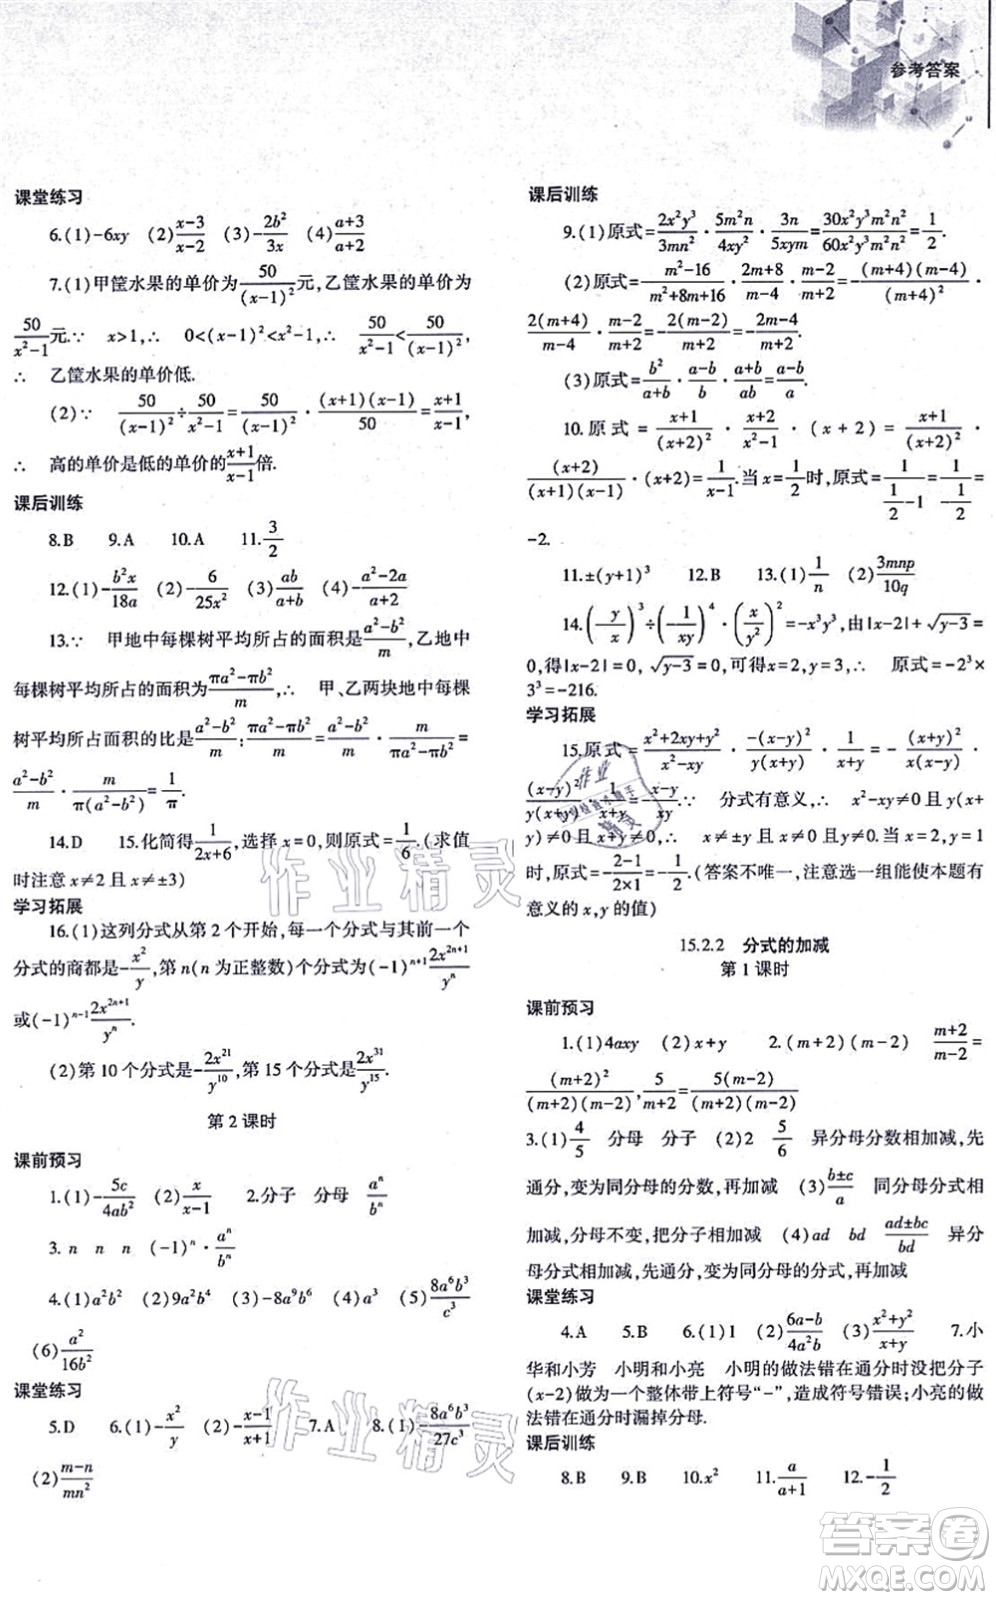 参考答案
课堂练习
6.(1)-6xy (2)\frac{x-3}{x-2} (3)-\frac{2b^2}{3x} (4)\frac{a+3}{a+2}
7.(1)甲筐水果的单价为\frac{50}{(x-1)^2}元,乙筐水果的单价为
\frac{50}{x^2-1}元.∵ x>1,∴ 0<(x-1)^2<x^2-1,∴ \frac{50}{x^2-1}<\frac{50}{(x-1)^2},
∴ 乙筐水果的单价低.
(2)∵ \frac{50}{(x-1)^2}÷\frac{50}{x^2-1}=\frac{50}{(x-1)^2}·\frac{(x+1)(x-1)}{50}=\frac{x+1}{x-1},
∴ 高的单价是低的单价的\frac{x+1}{x-1}倍.
课后训练
8.B 9.A 10.A 11.\frac{3}{2}
12.(1)-\frac{b^2x}{18a} (2)-\frac{6}{25x^2} (3)\frac{ab}{a+b} (4)-\frac{a^2-2a}{a+2}
13.∵ 甲地中每棵树平均所占的面积是\frac{a^2-b^2}{m},乙地中
每棵树平均所占的面积为\frac{πa^2-πb^2}{m},∴ 甲、乙两块地中每棵
树平均所占面积的比是\frac{a^2-b^2}{m}:\frac{πa^2-πb^2}{m}=\frac{a^2-b^2}{m}·\frac{m}{πa^2-πb^2}=
\frac{a^2-b^2}{m}·\frac{m}{π(a^2-b^2)}=\frac{1}{π}.
14.D 15.化简得\frac{1}{2x+6},选择 x=0,则原式=\frac{1}{6}.(求值
时注意 x≠2 且 x≠±3)
学习拓展
16.(1)这列分式从第 2 个开始,每一个分式与其前一个
分式的商都是-\frac{x^2}{y},第 n(n 为正整数)个分式为(-1)^{n+1}\frac{2x^{2n+1}}{y^n}
或(-1)^{n-1}\frac{2x^{2n+1}}{y^n}.
(2)第 10 个分式是-\frac{2x^{21}}{y^{10}},第 15 个分式是\frac{2x^{31}}{y^{15}}.
第 2 课时
课前预习
1.(1)-\frac{5c}{4ab^2} (2)\frac{x}{x-1} 2.分子 分母 \frac{a^n}{b^n}
3. n n n (-1)^n·\frac{a^n}{b^n}
4.(1)a^2b^2 (2)9a^2b^4 (3)-8a^9b^6 (4)a^3 (5)\frac{8a^6b^3}{c^3}
(6)\frac{a^2}{16b^2}
课堂练习
5.D 6.(1)-\frac{x^2}{y} (2)-\frac{x-1}{x+1} 7.A 8.(1)-\frac{8a^6b^3}{27c^3}
(2)\frac{m-n}{mn^2}
课后训练
9.(1)原式=\frac{2x^2y^3}{3mn^2}·\frac{5m^2n}{4xy^2}·\frac{3n}{5xym}=\frac{30x^2y^3m^2n^2}{60x^2y^3m^2n^2}=\frac{1}{2}.
(2)原式=\frac{m^2-16}{m^2+8m+16}·\frac{2m+8}{m-4}·\frac{m-2}{m+2}=\frac{(m+4)(m-4)}{(m+4)^2}·
\frac{2(m+4)}{m-4}·\frac{m-2}{m+2}=\frac{2(m-2)}{m+2}=\frac{2m-4}{m+2}.
(3)原式=\frac{b^2}{a+b}·\frac{a-b}{b}·\frac{a+b}{ab}=\frac{a-b}{a}.
10.原式=\frac{x+1}{(x+2)^2}·\frac{x+2}{x^2-1}·(x+2)=\frac{x+1}{(x+2)^2}·
\frac{(x+2)}{(x+1)(x-1)}·(x+2)=\frac{1}{x-1}.当 x=\frac{1}{2}时,原式=\frac{1}{\frac{1}{2}-1}=\frac{1}{-\frac{1}{2}}=
-2.
11.±(y+1)^3 12.B 13.(1)\frac{1}{n} (2)\frac{3mnp}{10q}
14.(-\frac{y}{x})^3÷(-\frac{1}{xy})^4·(\frac{x}{y^2})^2=-x^3y^3,由|x-2|+\sqrt{y-3}=
0,得|x-2|=0,\sqrt{y-3}=0,可得x=2,y=3,∴ 原式=-2^3×
3^3=-216.
学习拓展
15.原式=\frac{x^2+2xy+y^2}{x^2-xy}·\frac{-(x-y)^2}{y(x+y)}·\frac{1}{x+y}=-\frac{(x+y)^2}{x(x-y)}·
\frac{(x-y)^2}{y(x+y)}·\frac{1}{x+y}=-\frac{x-y}{xy}.∵ 分式有意义,∴ x^2-xy≠0 且 y(x+
y)≠0 且 x+y≠0,∴ x≠±y 且 x≠0 且 y≠0,∴ 当 x=2,y=1
时,原式=-\frac{2-1}{2×1}=-\frac{1}{2}.(答案不唯一,注意选一组能使本题有
意义的 x,y 的值)
15.2.2 分式的加减
第 1 课时
课前预习
1.(1)4axy (2)x+y 2.(m+2)(m-2) \frac{m+2}{m-2}=
\frac{(m+2)^2}{(m+2)(m-2)},\frac{5}{m+2}=\frac{5(m-2)}{(m+2)(m-2)}
3.(1)\frac{4}{5} 分母 分子 (2)2 \frac{5}{6} 异分母分数相加减,先
通分,变为同分母的分数,再加减 (3)\frac{b±c}{a} 同分母分式相
加减,分母不变,把分子相加减 (4)ad bd \frac{ad±bc}{bd} 异分
母分式相加减,先通分,变为同分母的分式,再加减
课堂练习
4.A 5.B 6.(1)1 (2)\frac{6a-b}{4a^2b} (3)\frac{x^2+y^2}{x+y} 7.小
华和小芳 小明和小亮 小明的做法错在通分时没把分子
(x-2)做为一个整体带上符号“-”,造成符号错误;小亮的做
法错在通分时漏掉分母.
课后训练
8.B 9.B 10.x^2 11.\frac{a}{a+1} 12.-\frac{1}{2}
作业精灵
作业精灵
答案圈
MXQE.COM